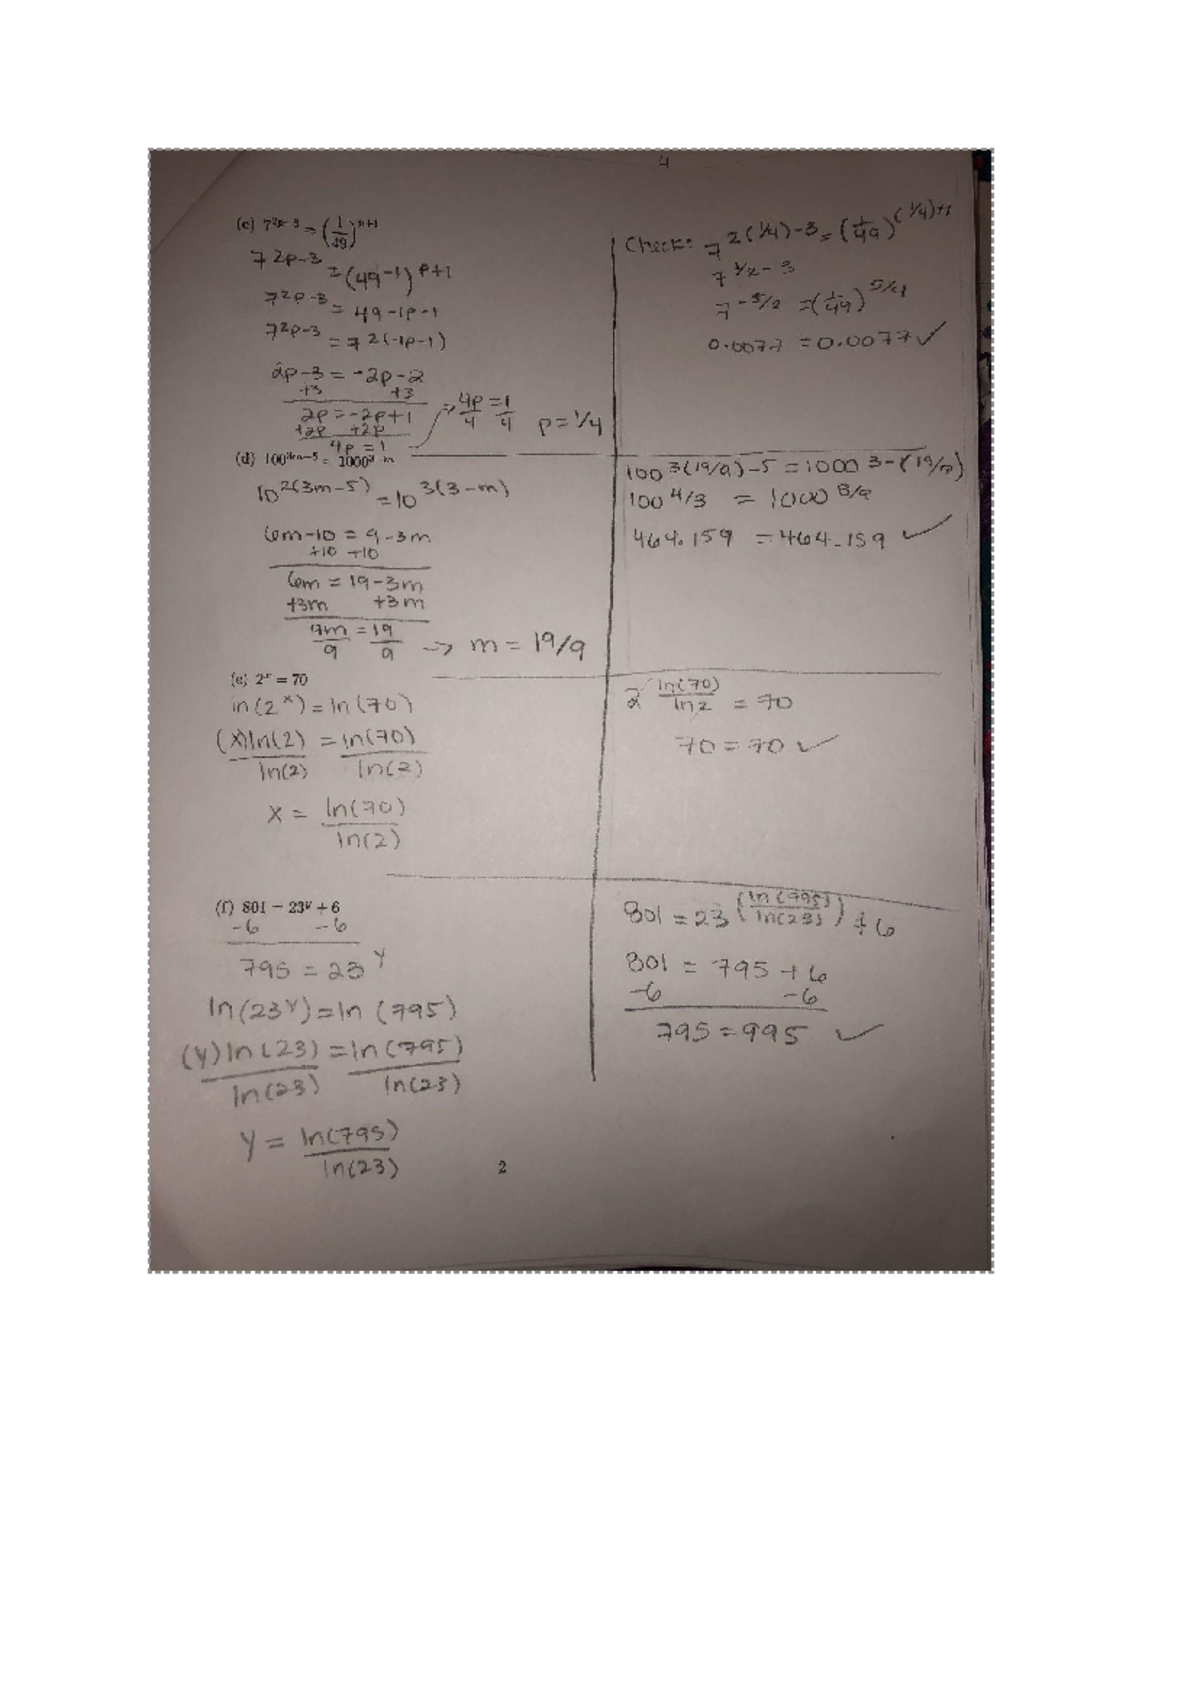 4
(c) 7^{2p-3} = (1/49)^{p+1}
7^{2p-3} = (49^{-1})^{p+1}
7^{2p-3} = 49^{-1p-1}
7^{2p-3} = 7^{2(-1p-1)}
2p-3 = -2p-2
+3 +3
2p = -2p+1
+2p +2p
4p = 1
→ 4p/4 = 1/4
p = 1/4
Check: 7^{2(1/4)-3} = (1/49)^{(1/4)+1}
7^{1/2-3}
7^{-5/2} = (1/49)^{5/4}
0.0077 = 0.0077 ✓
(d) 100^{3m-5} = 1000^{3-m}
10^{2(3m-5)} = 10^{3(3-m)}
6m-10 = 9-3m
+10 +10
6m = 19-3m
+3m +3m
9m/9 = 19/9 → m = 19/9
100^{3(19/9)-5} = 1000^{3-(19/9)}
100^{4/3} = 1000^{8/9}
464.159 = 464.159 ✓
(e) 2^x = 70
ln(2^x) = ln(70)
(x)ln(2)/ln(2) = ln(70)/ln(2)
x = ln(70)/ln(2)
2^{ln(70)/ln2} = 70
70 = 70 ✓
(f) 801 = 23^y + 6
-6 -6
795 = 23^y
ln(23^y) = ln(795)
(y)ln(23)/ln(23) = ln(795)/ln(23)
y = ln(795)/ln(23)
801 = 23^{(ln(795)/ln(23))} + 6
801 = 795 + 6
-6 -6
795 = 995 ✓
2